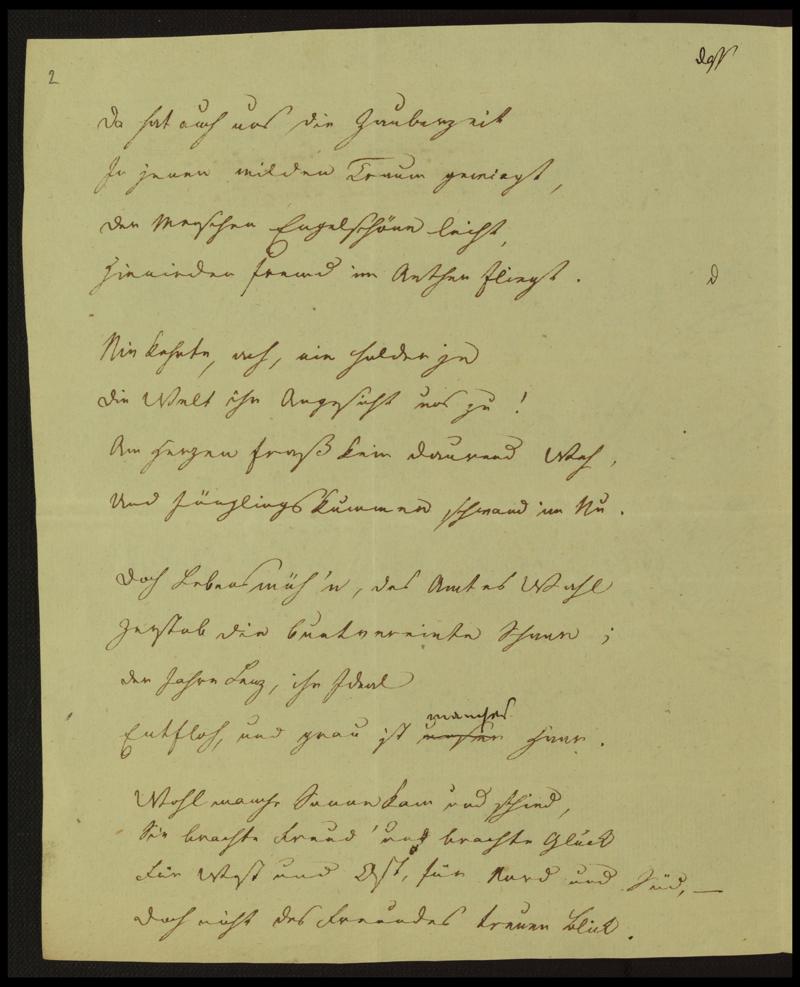 2
Da hat auch uns die Zauberzeit
In jenen milden Traum gewiegt,
Der Menschen Engelschöne leiht,
Hienieden fremd im Aether fliegt.
Nie kehrte, ach, ein holder je
Die Welt ihr Angesicht uns zu!
Am Herzen fraß kein daurend Weh,
Und Jünglingskummer schwand im Nu.
Doch Lebensmüh'n, des Amtes Wahl
Zerstob die buntvereinte Schaar;
Der Jahre Lenz, ihr Ideal
manches
Entfloh, und grau ist unser Haar.
Wohl manche Sonne kam und schied,
Sie brachte Freud' und brachte Glück
Für West und Ost, für Nord und Süd, —
Doch nicht des Freundes treuen Blick.